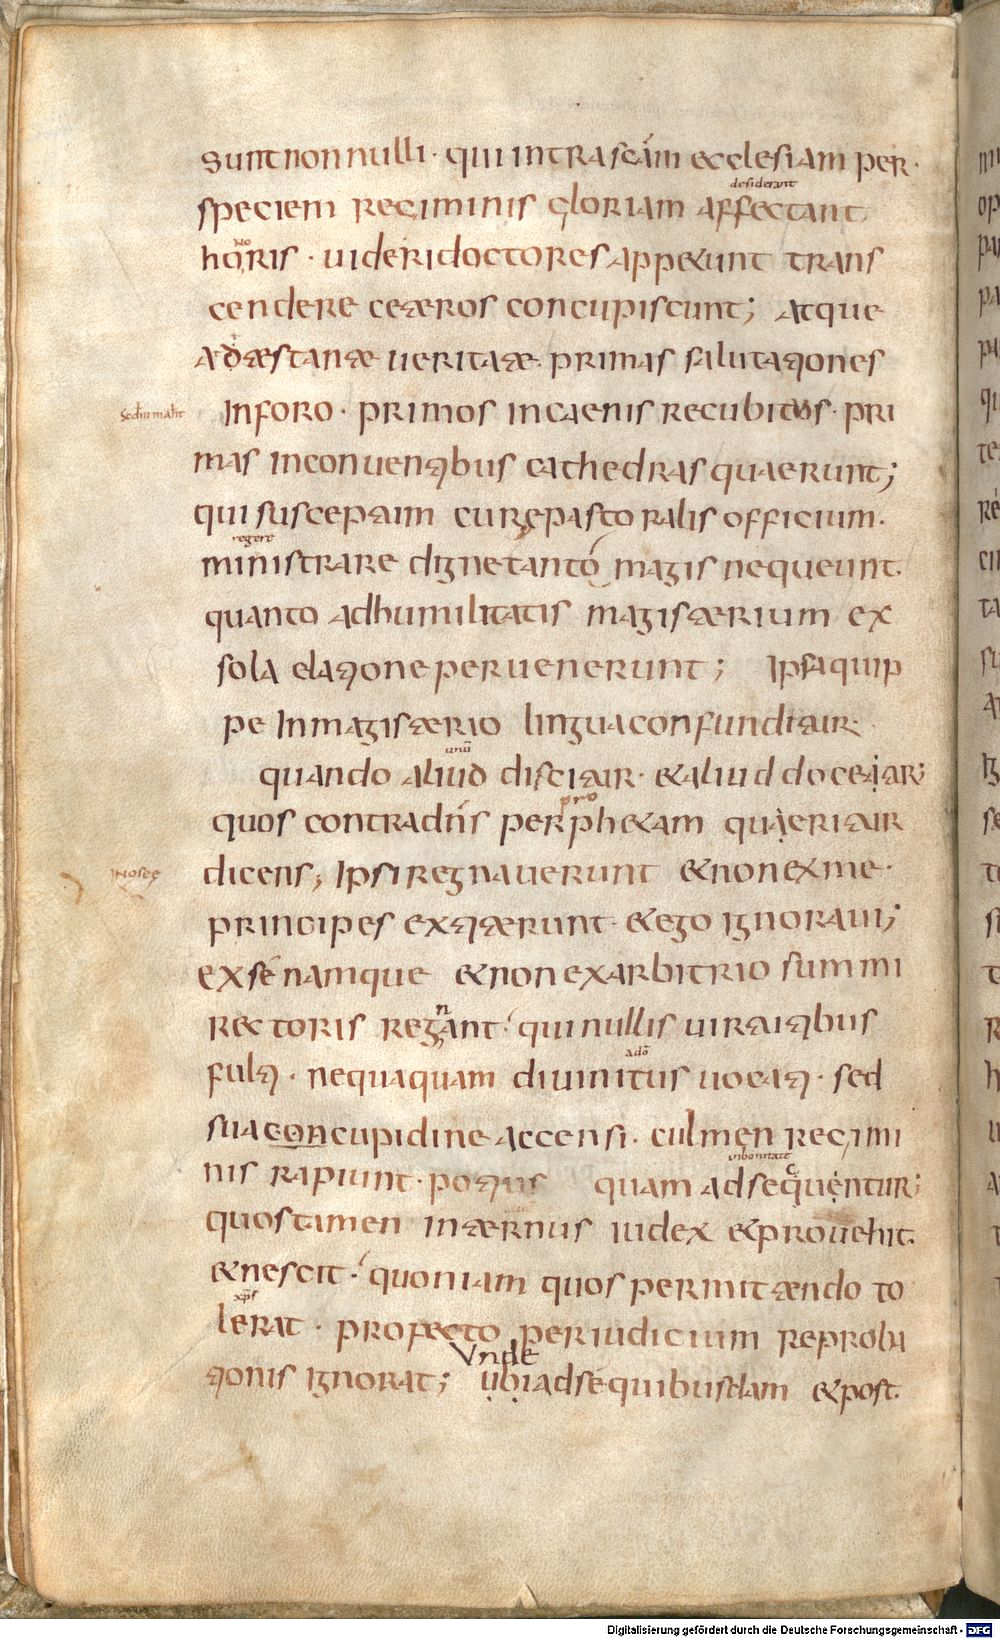 sunt non nulli · qui intra scām ecclesiam per ·
desiderant
speciem regiminis gloriam affectant
no
horis · uideri doctores appetunt trans
cendere ceteros concupiscunt; atque
adtestante ueritate · primas salutationes
Inforo · primos in caenis recubitos · pri
mas in conuentibus cathedras quaerunt;
qui susceptum curę pastoralis officium ·
regere
ministrare digne tanto magis nequeunt
quanto ad humilitatis magisterium ex
sola elatione peruenerunt; Ipsa quip
pe In magisterio lingua confunditur ·
unū
quando aliud discitur · et aliud docetur;
pro
quos contra dn̄s per phetam quaeritur
Inosee
dicens; Ipsi regnauerunt et non ex me ·
principes extiterunt · et ego ignoraui;
ex se namque et non ex arbitrio summi
n
rectoris regant · qui nullis uirtutibus
ado
fulti · nequaquam diuinitus uocati · sed
sua concupidine accensi · culmen regimi
nis rapiunt · potius quam adsequentur;
quos tamen internus iudex et prouehit
et nescit · quoniam quos permittendo to
xp̄s
lerat · profecto per iudicium reproba
Vnde
tionis ignorat; ubi ad se quibusdam et post